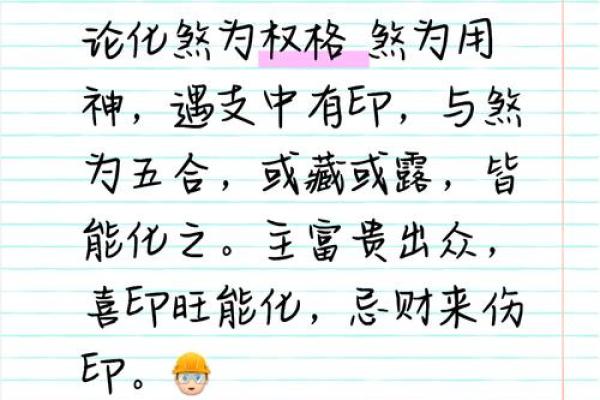 论化煞为权格 煞为用
神，遇支中有印，与煞
为五合，或藏或露，皆
能化之。主富贵出众，
喜印旺能化，忌财来伤
印。